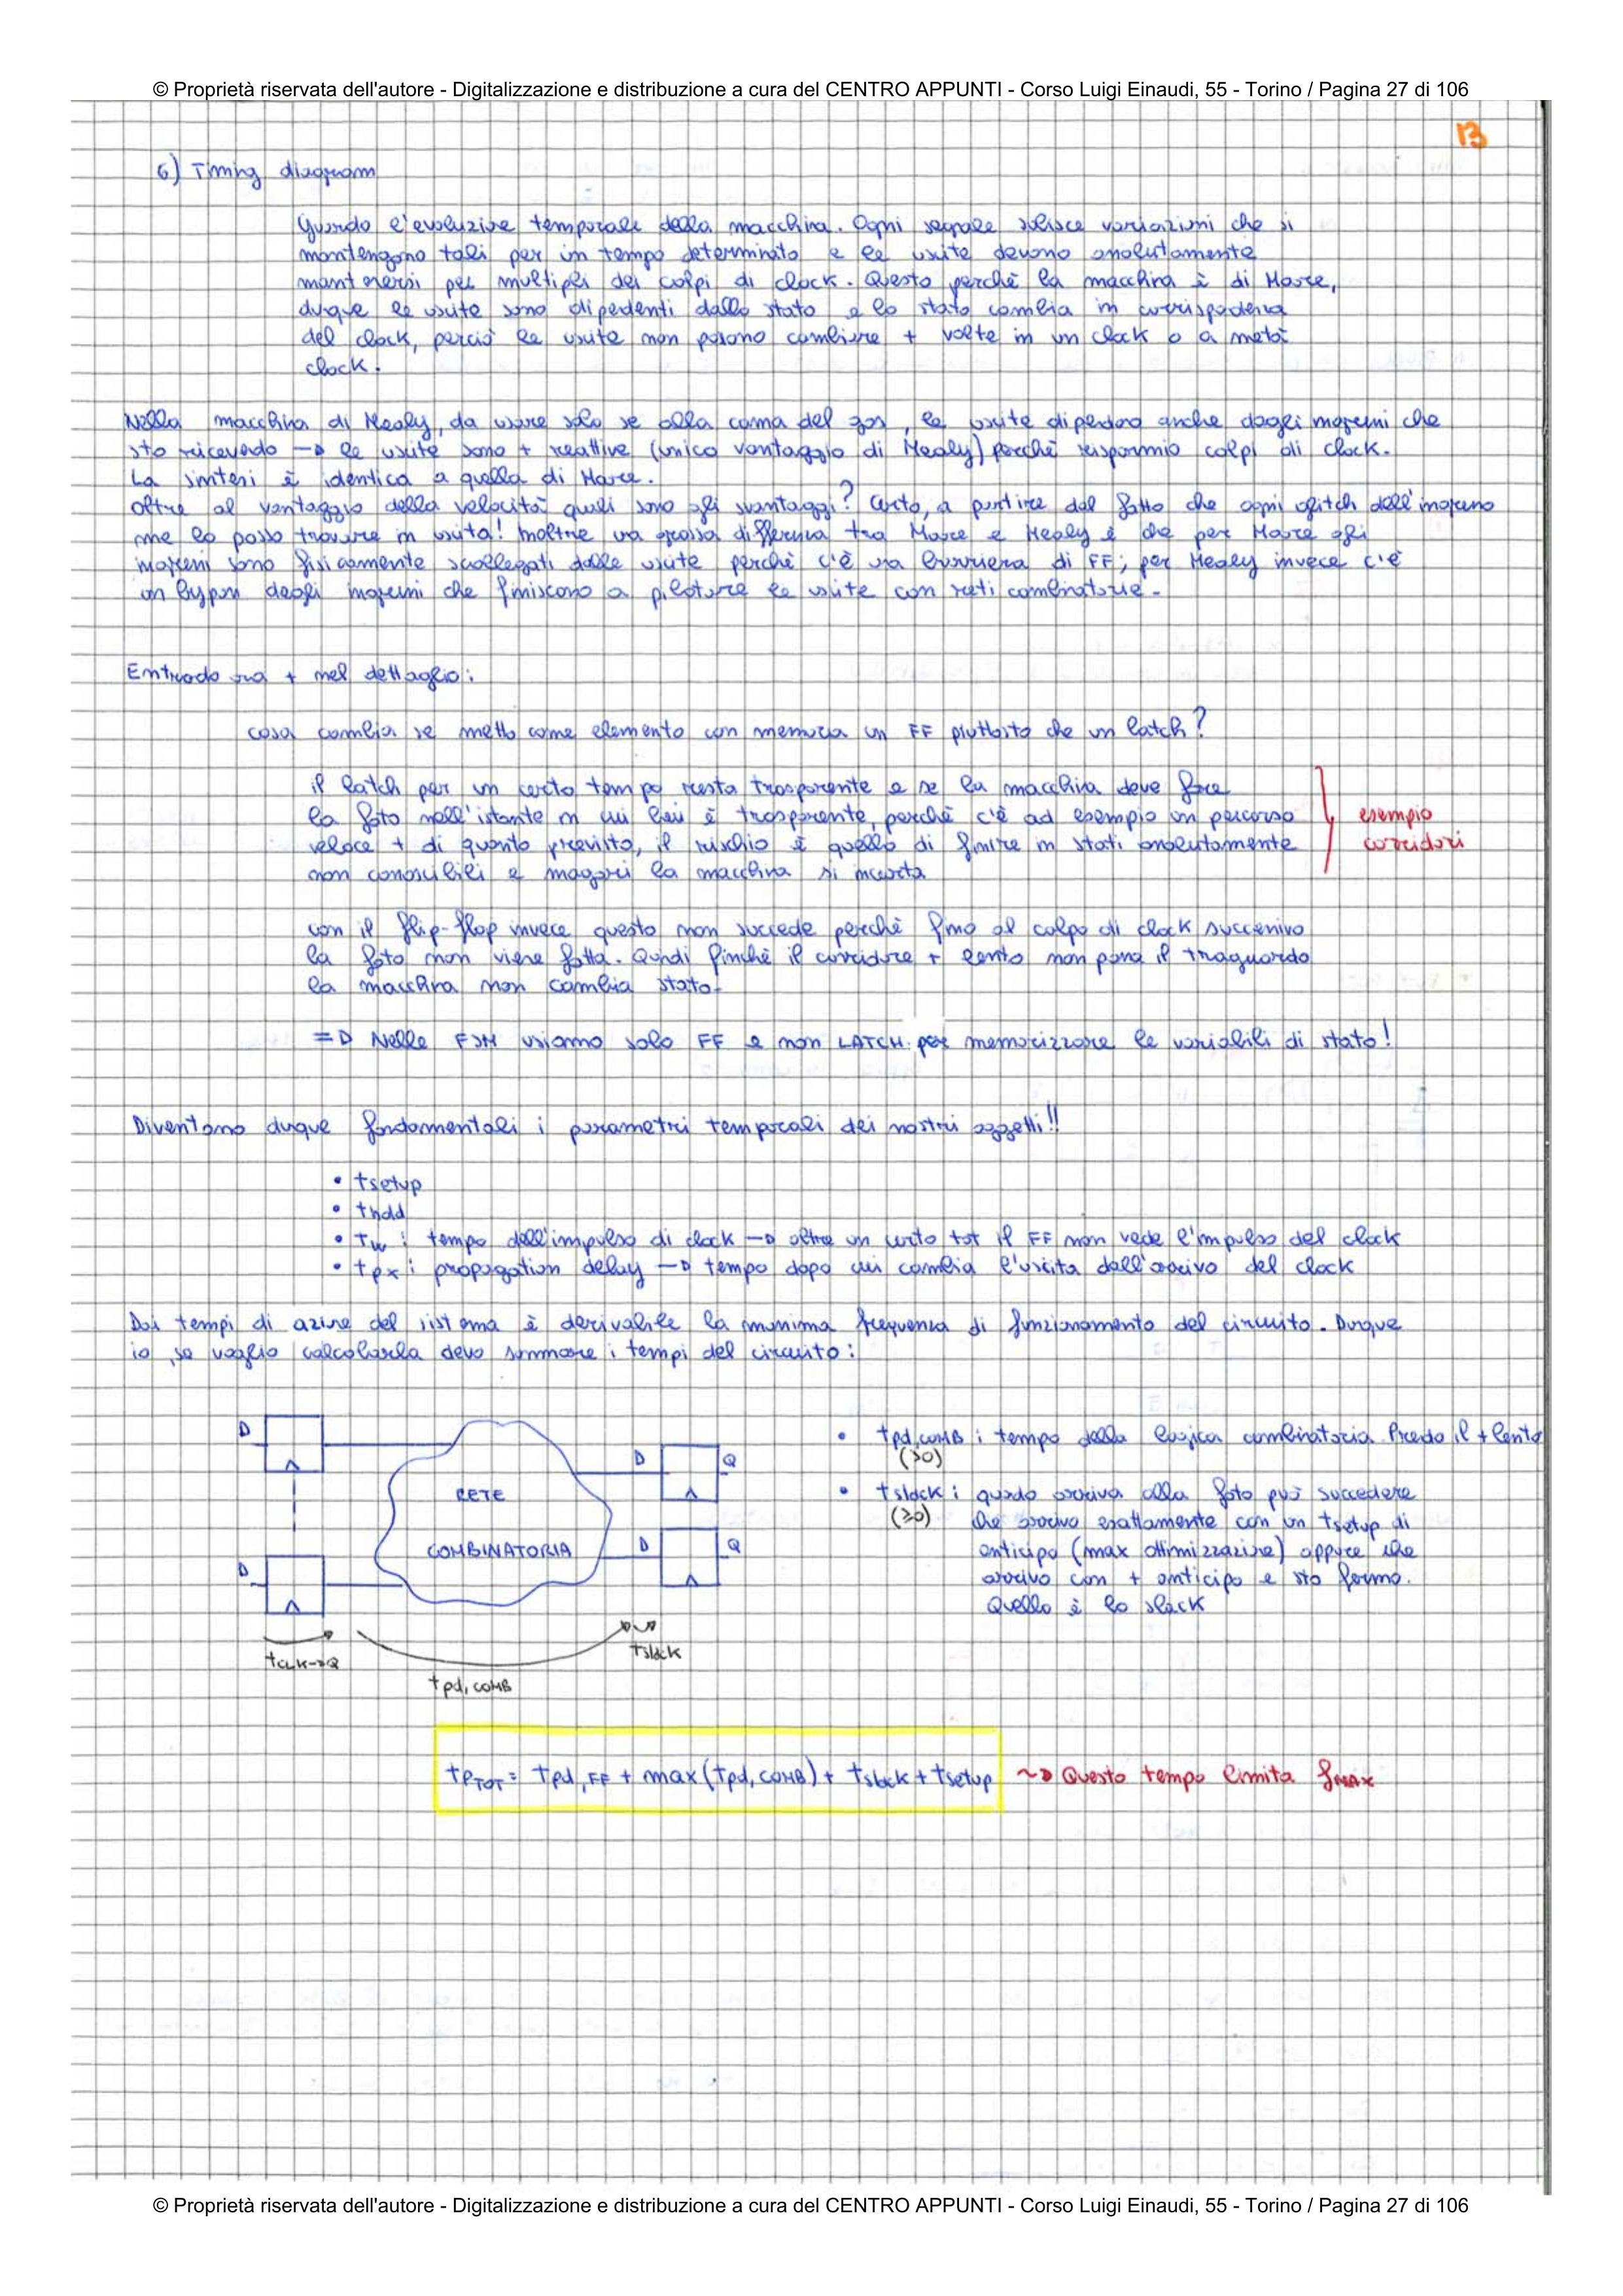 © Proprietà riservata dell'autore - Digitalizzazione e distribuzione a cura del CENTRO APPUNTI - Corso Luigi Einaudi, 55 - Torino / Pagina 27 di 106
13
6) Timing diagram
Guardo l'evoluzione temporale della macchina. Ogni segnale subisce variazioni che si
mantengono tali per un tempo determinato e le uscite devono assolutamente
mantenersi per multipli dei colpi di clock. Questo perchè la macchina è di Moore,
dunque le uscite sono dipendenti dallo stato e lo stato cambia in corrispondenza
del clock, perciò le uscite non possono cambiare + volte in un clock o a metà
clock.
Nella macchina di Mealy, da usare solo se alla canna del gas, le uscite dipendono anche dagli ingressi che
sto ricevendo → le uscite sono + reattive (unico vantaggio di Mealy) perchè risparmio colpi di clock.
La sintesi è identica a quella di Moore.
Oltre al vantaggio della velocità quali sono gli svantaggi? Certo, a partire dal fatto che ogni glitch dell'ingresso
me lo posso trovare in uscita! Inoltre una grossa differenza tra Moore e Mealy è che per Moore gli
ingressi sono fisicamente scollegati dalle uscite perchè c'è una barriera di FF; per Mealy invece c'è
un bypass degli ingressi che finiscono a pilotare le uscite con reti combinatorie.
Entrando ora + nel dettaglio:
cosa cambia se metto come elemento con memoria un FF piuttosto che un latch?
il latch per un certo tempo resta trasparente e se la macchina deve fare
la foto nell'istante in cui lui è trasparente, perchè c'è ad esempio un percorso
veloce + di quanto previsto, il rischio è quello di finire in stati assolutamente
non conoscibili e magari la macchina si incarta
esempio
corridori
con il flip-flop invece questo non succede perchè fino al colpo di clock successivo
la foto non viene fatta. Quindi finchè il corridore + lento non passa il traguardo
la macchina non cambia stato.
⇒ Nelle FSM usiamo solo FF e non LATCH per memorizzare le variabili di stato!
Diventano dunque fondamentali i parametri temporali dei nostri oggetti!!
• tsetup
• thold
• tw : tempo dell'impulso di clock → oltre un certo tot il FF non vede l'impulso del clock
• tpx : propagation delay → tempo dopo cui cambia l'uscita dall'arrivo del clock
Dai tempi di azione del sistema è derivabile la minima frequenza di funzionamento del circuito. Dunque
io se voglio calcolarla devo sommare i tempi del circuito:
D
D
RETE
COMBINATORIA
D Q
D Q
tCLK→Q
tpd, COMB
tslack
• tpd,COMB : tempo della logica combinatoria. Prendo il + lento
(>0)
• tslack : quando arriva alla foto può succedere
(≥0) che arrivo esattamente con un tsetup di
anticipo (max ottimizzazione) oppure che
arrivo con + anticipo e sto fermo.
Quello è lo slack
tpTOT = tpd,FF + max(tpd,COMB) + tslack + tsetup ⇝ Questo tempo limita fMAX
© Proprietà riservata dell'autore - Digitalizzazione e distribuzione a cura del CENTRO APPUNTI - Corso Luigi Einaudi, 55 - Torino / Pagina 27 di 106